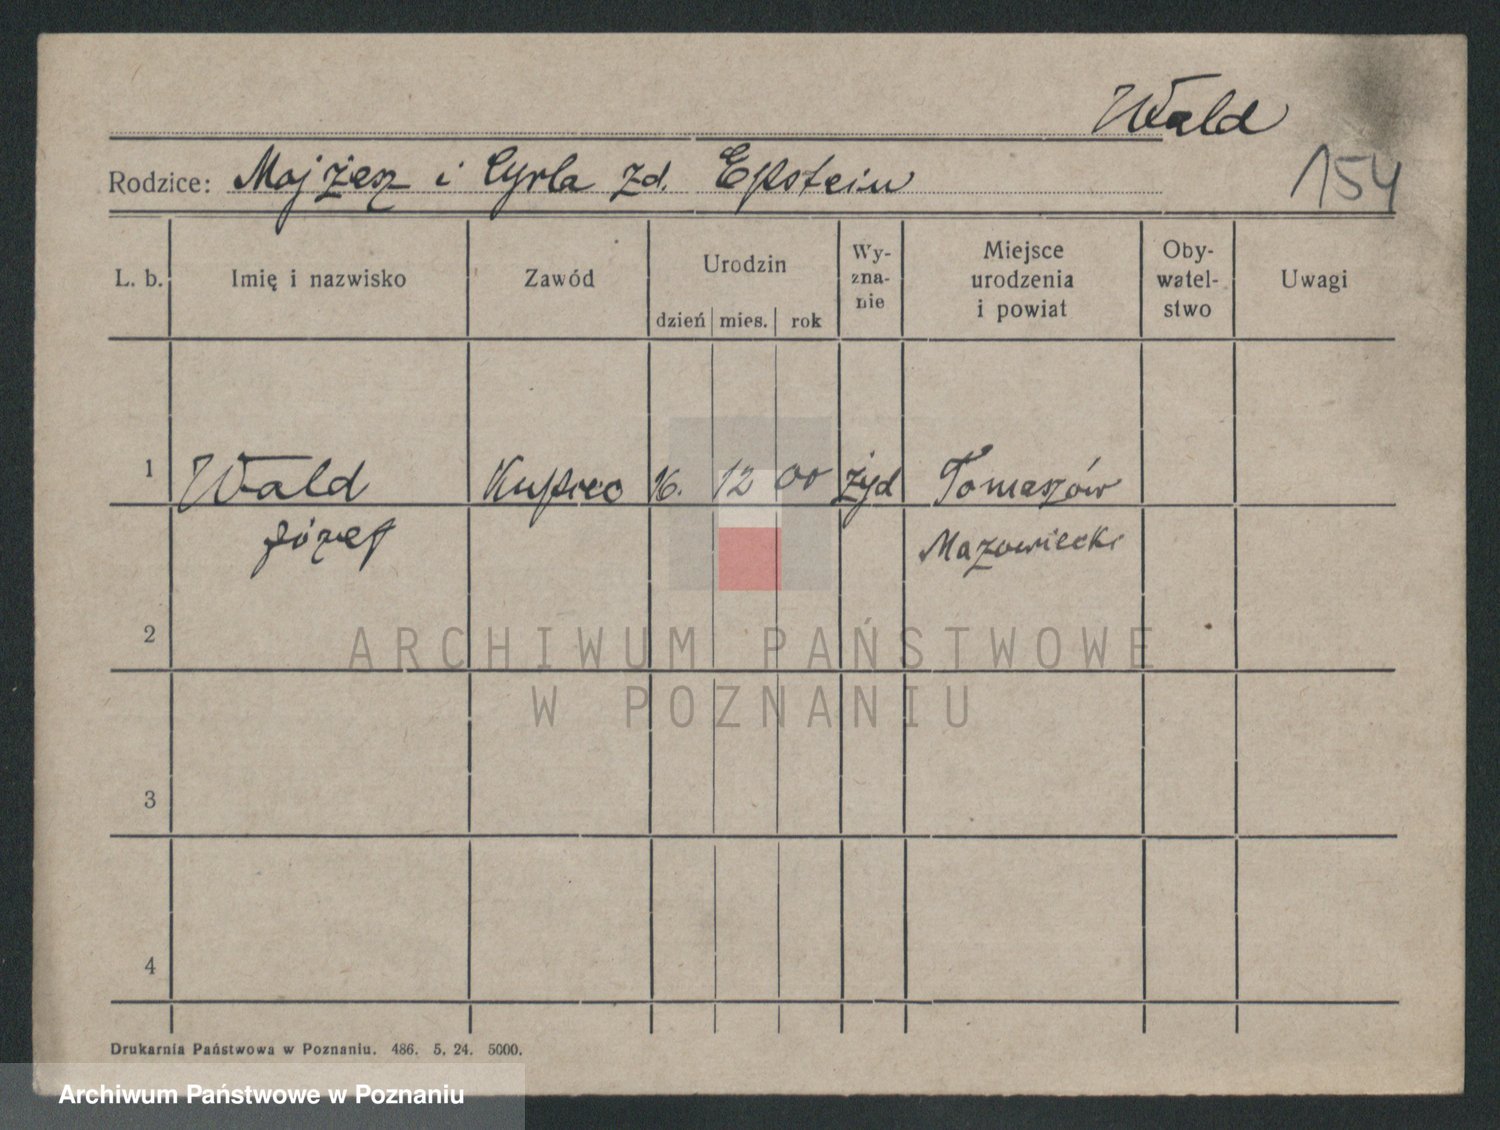 Wald
Rodzice: Mojżesz i Cyrla zd. Epstein
154
L. b. Imię i nazwisko Zawód Urodzin dzień mies. rok Wy-zna-nie Miejsce urodzenia i powiat Oby-watel-stwo Uwagi
1 Wald Kupiec 16. 12 00 żyd Tomaszów
Józef Mazowiecki
2
ARCHIWUM PAŃSTWOWE
W POZNANIU
3
4
Drukarnia Państwowa w Poznaniu. 486. 5. 24. 5000.
Archiwum Państwowe w Poznaniu